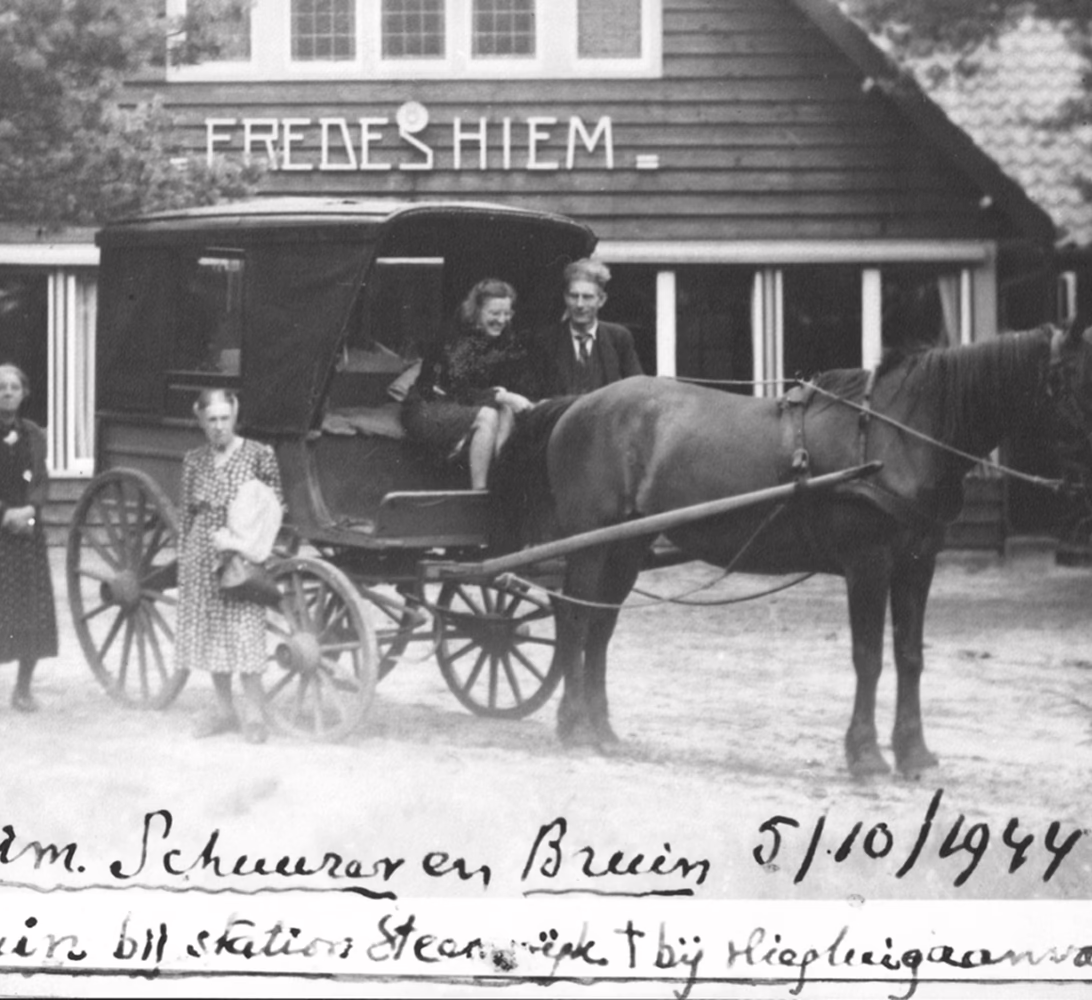 FREDESHIEM =
Schuurer en Bruin 5/10/1944
bij station Steenwijk † bij vliegtuigaanva